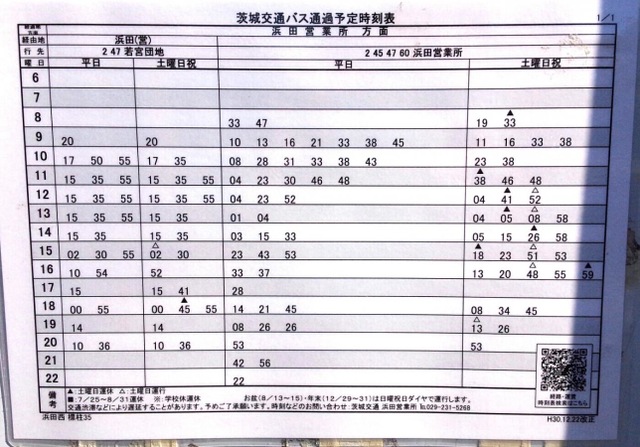 茨城交通バス通過予定時刻表 1/1
方面 浜田営業所 方面
経由地 浜田(営)
行先 2 47 若宮団地 2 45 47 60 浜田営業所
曜日 平日 土曜日祝 平日 土曜日祝
6
7
8 33 47 19 ▲33
9 20 20 10 13 16 21 33 38 45 11 16 33 38
10 17 50 55 17 35 08 28 31 33 38 43 23 38
11 15 35 55 15 35 55 04 23 30 46 48 ▲38 46 48
12 15 35 55 15 35 55 04 23 52 04 ▲41 △52
13 15 35 55 15 35 55 01 04 04 ▲05 △08 58
14 15 35 15 35 03 15 33 05 15 ▲26 58
15 02 30 55 △02 30 23 43 53 ▲18 23 △51 53
16 10 54 52 33 37 13 20 △48 55 ▲59
17 15 15 41 28
18 00 55 00 ▲45 55 14 21 45 08 34 45
19 14 14 08 26 26 △13 26
20 10 36 10 36 53 53
21 42 56
22 22
備考 ▲:土曜日運休 △:土曜日運行
■:7/25~8/31運休 ※:学校休運休 お盆(8/13~15)・年末(12/29~31)は日曜祝日ダイヤで運行します。
交通渋滞などにより遅延することがあります。予めご了承願います。時刻などのお問い合わせ:茨城交通 浜田営業所 ℡029-231-5268
経路・運賃
時刻表検索はこちら
浜田西 標柱35 H30.12.22改正